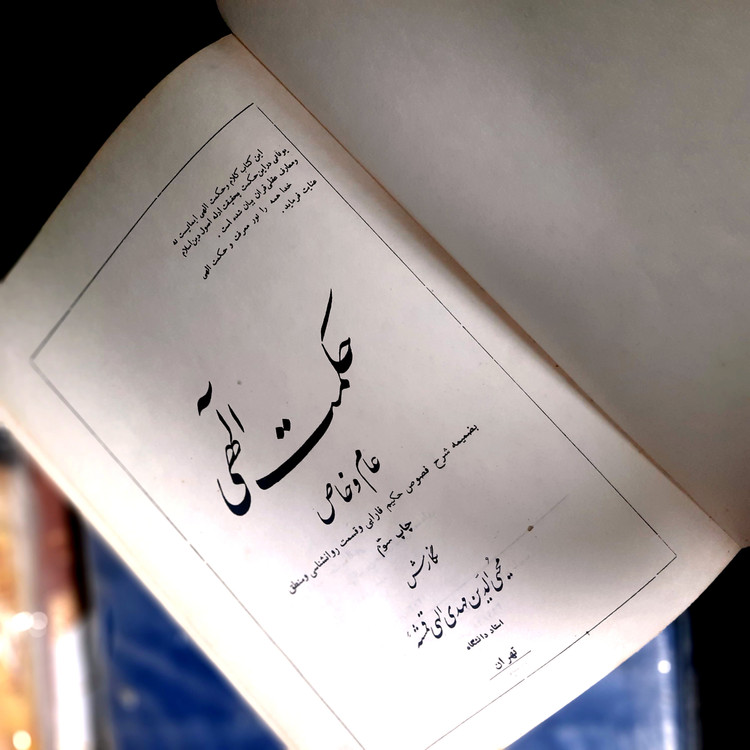 این کتاب کلام و حکمت الهی ایمانیست نه
یونانی در این حکمت بحقیقت ادله اصول دین اسلام
و معارف عقلی قرآن بیان شده است .
خدا همه را نور معرفت و حکمت الهی
عنایت فرماید .
حکمت الٓهی
عام و خاص
بضمیمه شرح فصوص حکیم فارابی وقسمت روانشناسی ومنطق
چاپ سوّم
نگارش
محیی الدین مهدی الهی قمشهٔ
استاد دانشگاه
تهران